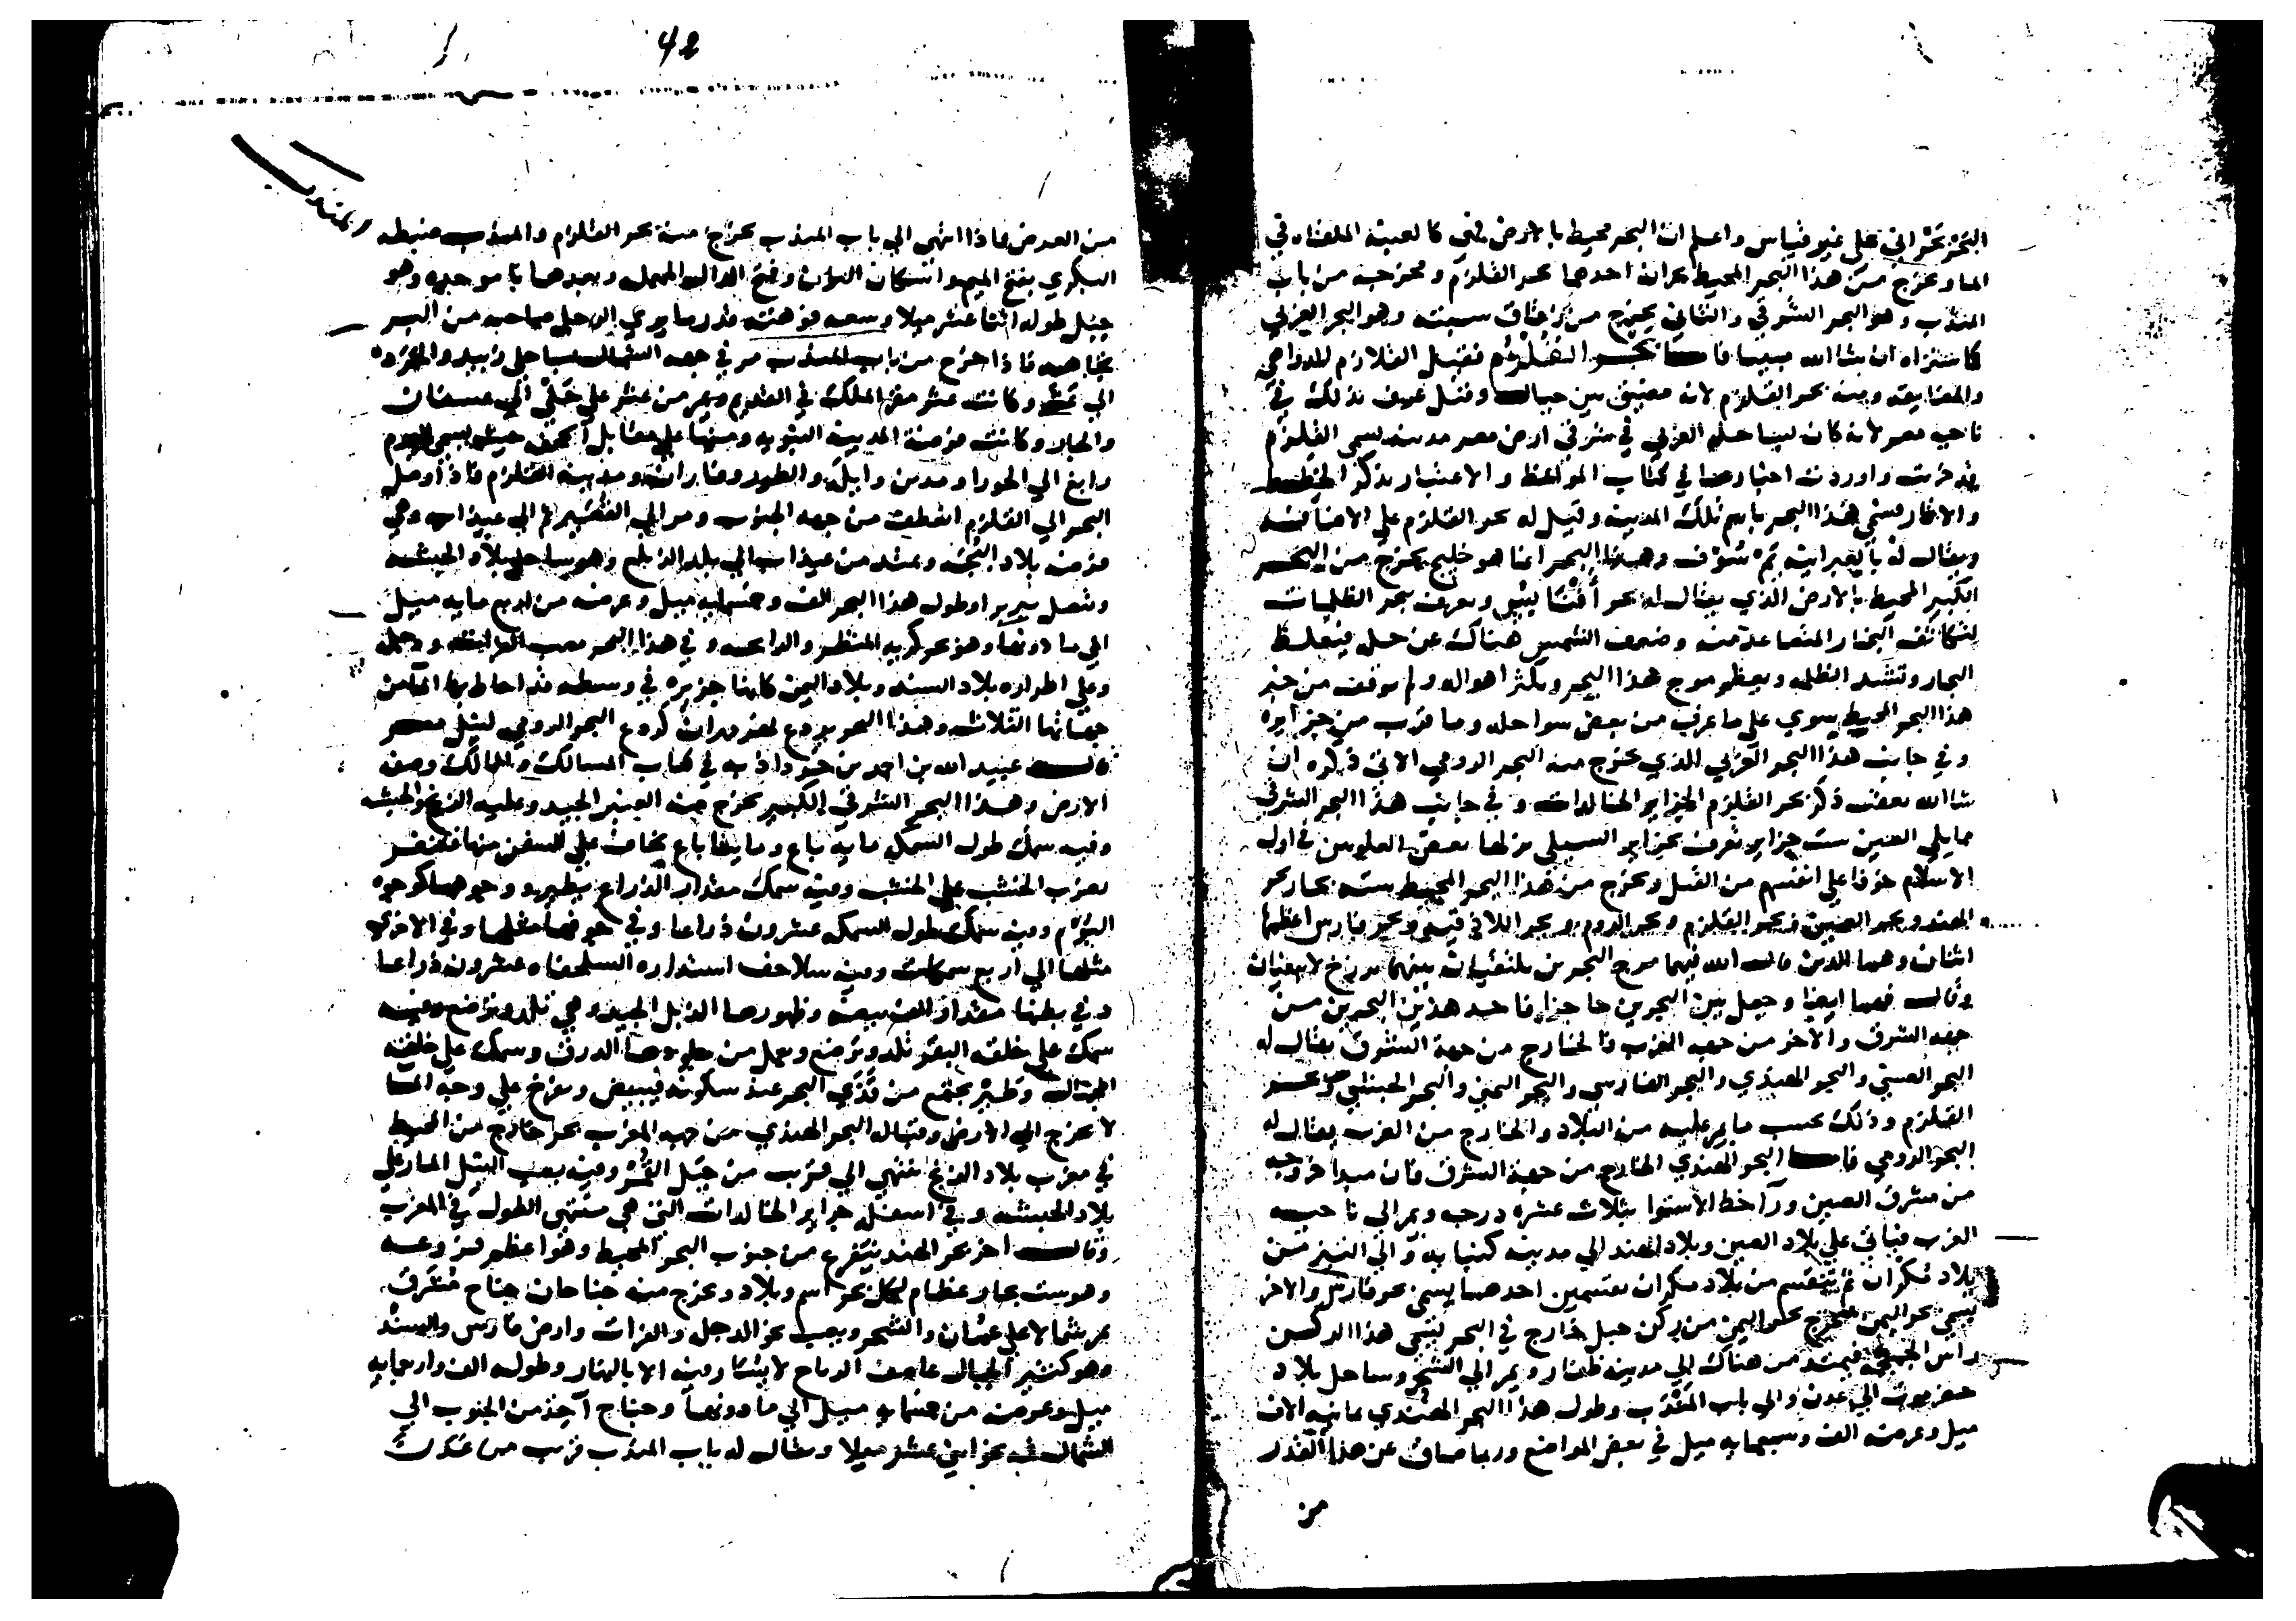 البحر بحراني علي غير قياس واعلم ان البحر محيط بالارض فهي كالعيبة الملقاه في
الما ويخرج من هذا البحر المحيط بحران احدهما بحر القلزم ومخرجه من باب
المندب وهو البحر الشرقي والثاني يخرج من زقاق سبته وهو البحر الغربي
كما ستراه ان شا الله مبينا فاما بحر القلزم فقيل القلازم للدواهي
والمضايقه ومنه بحر القلزم لانه مضيق بين جبال وقيل عرف بذلك في
ناحيه مصر لانه كان بساحله الغربي في شرقي ارض مصر مدينه تسمي القلزم
قد خربت واوردت اخبارها في كتاب المواعظ والاعتبار بذكر الخطط
والاثار فسمي هذا البحر باسم تلك المدينه وقيل له بحر القلزم علي الاضافه
ويقال له بالعبرانيه يم سوف وهذا البحر انما هو خليج يخرج من البحر
الكبير المحيط بالارض الذي يقال له بحر اقيانس ويعرف ببحر الظلمات
لتكاثف البخار المتصاعد منه وضعف الشمس هناك عن حله فيغلظ
البخار وتشتد الظلمه ويعظم موج هذا البحر وتكثر اهواله ولم يوقف من خبر
هذا البحر المحيط سوي علي ما عرف من بعض سواحله وما قرب من جزايره
وفي جانب هذا البحر الغربي الذي يخرج منه البحر الرومي الاتي ذكره ان
شا الله بعقب ذكر بحر القلزم الجزاير الخالدات وفي جانب هذا البحر الشرقي
مما يلي الصين ست جزاير تعرف بجزاير السيلي نزلها بعض العلويين في اول
الاسلام خوفا علي انفسهم من القتل ويخرج من هذا البحر المحيط سته بحار بحر
الهند وبحر الصين وبحر القلزم وبحر الروم وبحر اللاذقيه وبحر فارس اعظمها
اثنان وهما الذين قال الله فيهما مرج البحرين يلتقيان بينهما برزخ لا يبغيان
وقال فيهما ايضا وجعل بين البحرين حاجزا فاحد هذين البحرين من
جهه الشرق والاخر من جهه الغرب فالخارج من جهة الشرق يقال له
البحر الصيني والبحر الهندي والبحر الفارسي والبحر اليمني والبحر الحبشي وبحر
القلزم وذلك بحسب ما يمر عليه من البلاد والخارج من الغرب يقال له
البحر الرومي فاما البحر الهندي الخارج من جهة الشرق فان مبدا خروجه
من مشرق الصين ورا خط الاستوا بثلاث عشره درجه ويمر الي ناحيه
الغرب فياتي علي بلاد الصين وبلاد الهند الي مدينه كنبايه والي التيز من
بلاد مكران ثم ينقسم من بلاد مكران بقسمين احدهما يسمي بحر فارس والاخر
يسمي بحر اليمن فيخرج بحر اليمن من ركن جبل خارج في البحر يسمي هذا الركن
راس الجمجمه فيمتد من هناك الي مدينه ظفار ويمر الي الشحر وساحل بلاد
حضرموت الي عدن والي باب المندب وطول هذا البحر الهندي ثمانيه الاف
ميل وعرضه الف وسبعمايه ميل في بعض المواضع وربما ضاق عن هذا القدر
من
42
المندب
من العرض فاذا انتهي الي باب المندب يخرج منه بحر القلزم والمندب ضبطه
البكري بفتح الميم واسكان النون وفتح الدال المهمله وبعدها با موحده وهو
جبل طوله اثنا عشر ميلا وسعه فوهته قدر ما يري الرجل صاحبه من البر
تجاهه فاذا خرج من باب المندب مر في جهه الشمال بساحلي زبيد والحرده
الي عثر وكانت عثر مقر الملك في القديم ويمر من عثر علي حلي الي عسفان
والجار وكانت فرضة المدينه النبويه ومنها علي مقابل الجحفه حيث يسمي اليوم
رابغ الي الحورا ومدين وايله والطور وفاران ومدينه القلزم فاذا وصل
البحر الي القلزم انعطف من جهه الجنوب ومر الي القصير ثم الي عيذاب وهي
فرضه بلاد البجه ويمتد من عيذاب الي بلد الزيلع وهو ساحل بلاد الحبشه
ويتصل ببربرا وطول هذا البحر الف وخمسمايه ميل وعرضه من اربع مايه ميل
الي ما دونها وهو بحر كريه المنظر والرايحه وفي هذا البحر مصب الفرات ودجله
وعلي اطرافه بلاد السند وبلاد اليمن كانها جزيره في وسطه قد احاط بها الما من
جهاتها الثلاث وهذا البحر يردع لنهر مهران كردع البحر الرومي لنيل مصر
قال عبيد الله بن احمد بن خرداذبه في كتاب المسالك والممالك وصفه
الارض وهذا البحر الشرقي الكبير يخرج منه العنبر الجيد وعليه الزنج والحبشه
وفيه سمك طول السمكه مايه باع ومايتا باع يخاف علي السفن منها فتنفر
بضرب الخشب علي الخشب وفيه سمك مقدار الذراع يطير ووجوهها كوجوه
البوم وفيه سمك طول السمكه عشرون ذراعا وفي جوفها مثلها وفي الاخري
مثلها الي اربع سمكات وفيه سلاحف استداره السلحفاه عشرون ذراعا
وفي بطنها مقدار الف بيضه وظهورها الذبل الجيد وهي تلد وترضع وفيه
سمك علي خلقه البقر تلد وترضع ويعمل من جلودها الدرق وسمك علي خلقه
الجمال وطير يجتمع من قذي البحر عند سكونه فيبيض ويفرخ علي وجه الما
لا يخرج الي الارض وقباله البحر الهندي من جهه المغرب بحر خارج من المحيط
في مغرب بلاد الزنج ينتهي الي قرب من جبل القمر وفيه يصب النيل المار علي
بلاد الحبشه وفي اسفله جزاير الخالدات التي هي منتهي الطول في المغرب
وقال اخر بحر الهند يتفرع من جنوب البحر المحيط وهو اعظم فروعه
وهو ست بحار عظام لكل بحر اسم وبلاد ويخرج منه جناحان جناح مشرق
يمر شمالا علي عمان والشحر ويصب بحر الدجله والفرات وارض فارس والسند
وهو كثير الجبال عاصف الرياح لا يسار فيه الا بالنهار وطوله الف واربعمايه
ميل وعرضه من خمسمايه ميل الي ما دونها وجناح آخذ من الجنوب الي
الشمال في نحو اثني عشر ميلا ويقال له باب المندب قرب من عدن